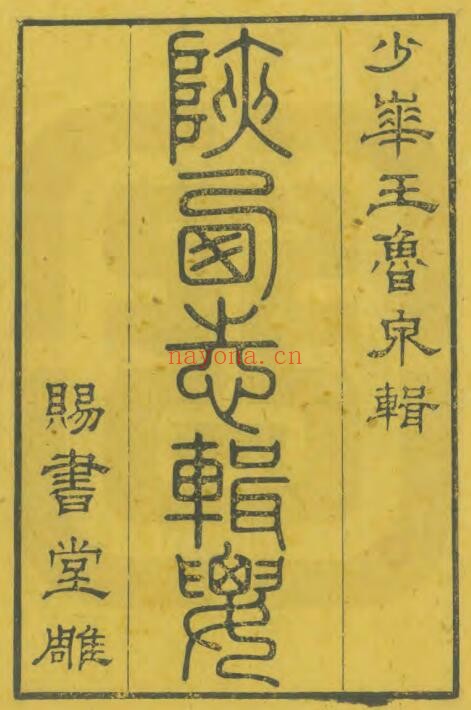 少崋王魯泉輯
陝西志輯要
賜書堂雕
nayona.cn